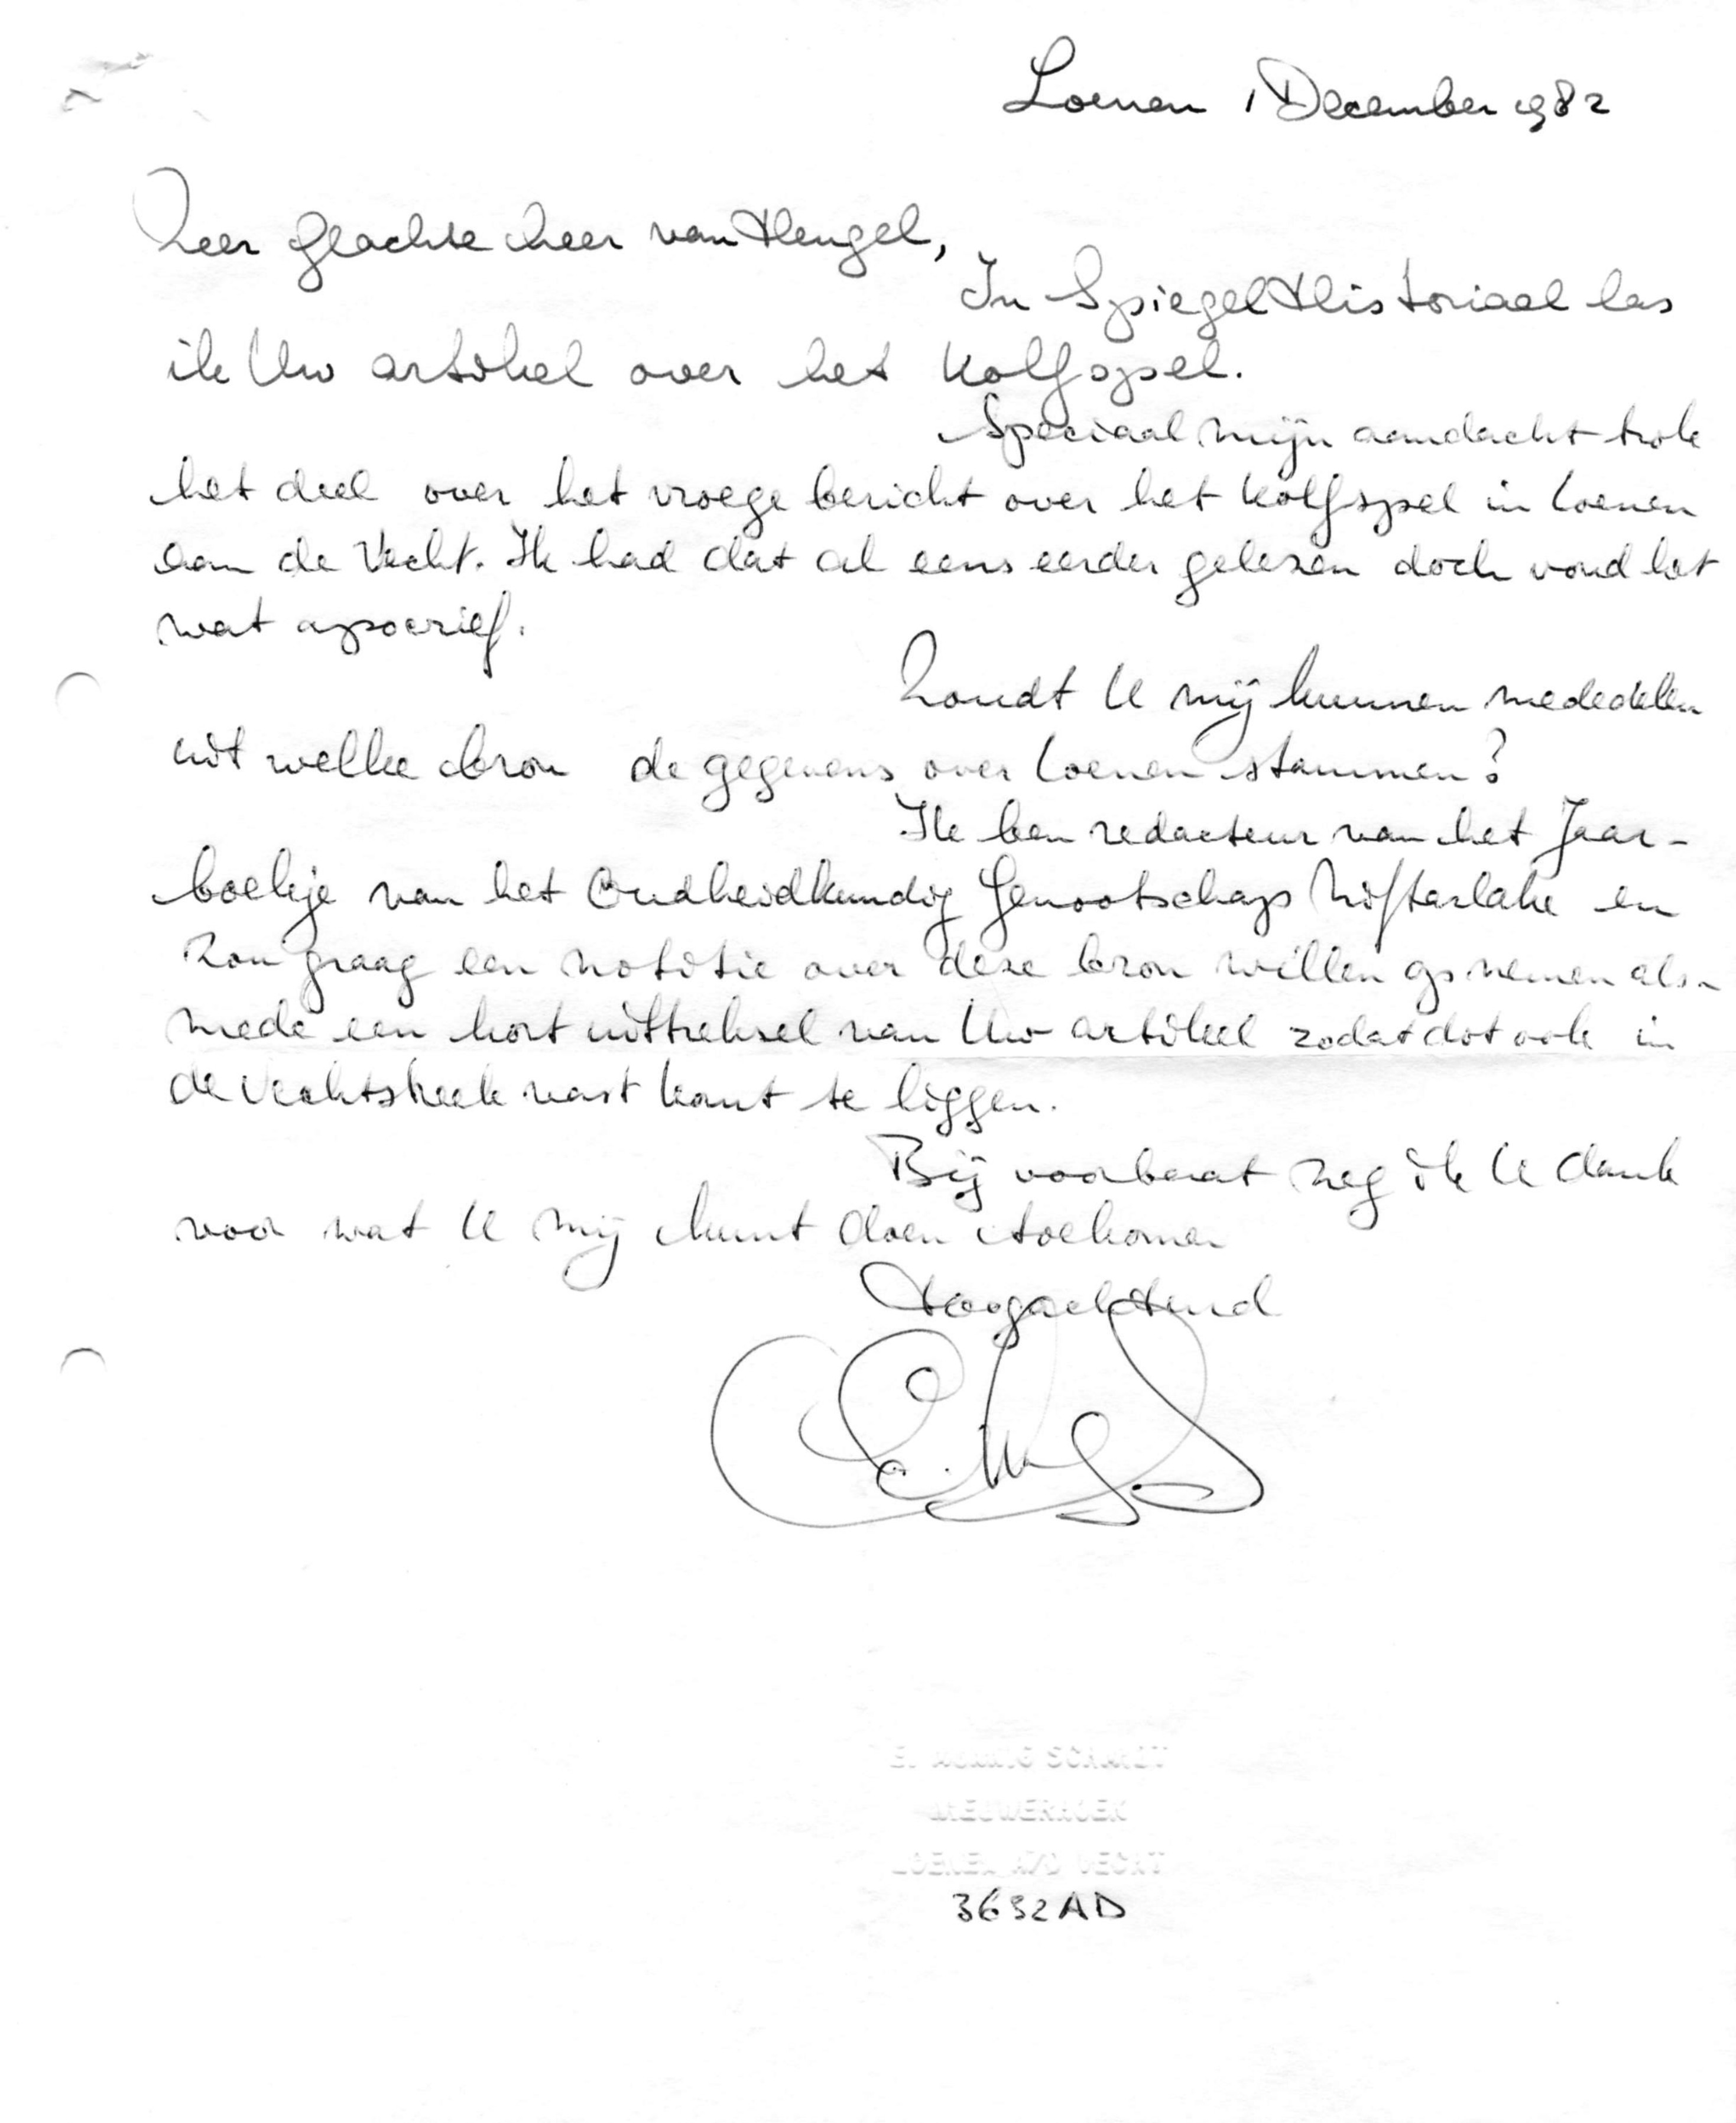 Loenen 1 December 1982
Zeer Geachte heer van Hengel,
In Spiegel Historiael las
ik Uw artikel over het Kolfspel.
Speciaal mijn aandacht trok
het deel over het vroege bericht over het kolfspel in Loenen
aan de Vecht. Ik had dat al eens eerder gelezen doch vond het
wat apocrief.
Zoudt U mij kunnen mededelen
uit welke bron de gegevens over Loenen stammen?
Ik ben redacteur van het Jaar-
boekje van het Oudheidkundig Genootschap Niftarlake en
zou graag een notitie over deze bron willen opnemen als-
mede een kort uittreksel van Uw artikel zodat dat ook in
de Vechtstreek vast komt te liggen.
Bij voorbaat zeg ik U dank
voor wat U mij kunt doen toekomen
Hoogachtend
E. MUNNIG SCHMIDT
NIEUWERHOEK
LOENEN A/D VECHT
3632AD